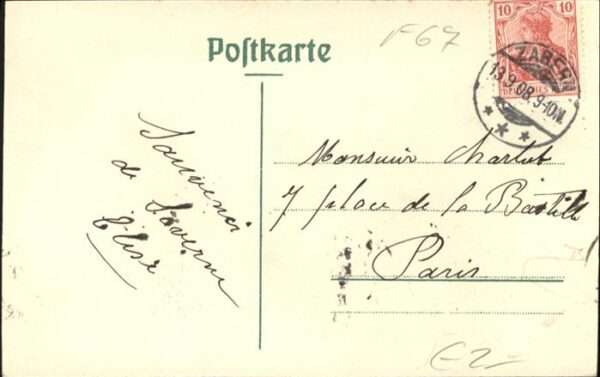 Postkarte
F67
10 10
DEUTSCHES
ZABERN
13.9.08.9-10N.
Souvenir
de Saverne
Elise
Monsieur Charlut
7 place de la Bastille
Paris
E2-